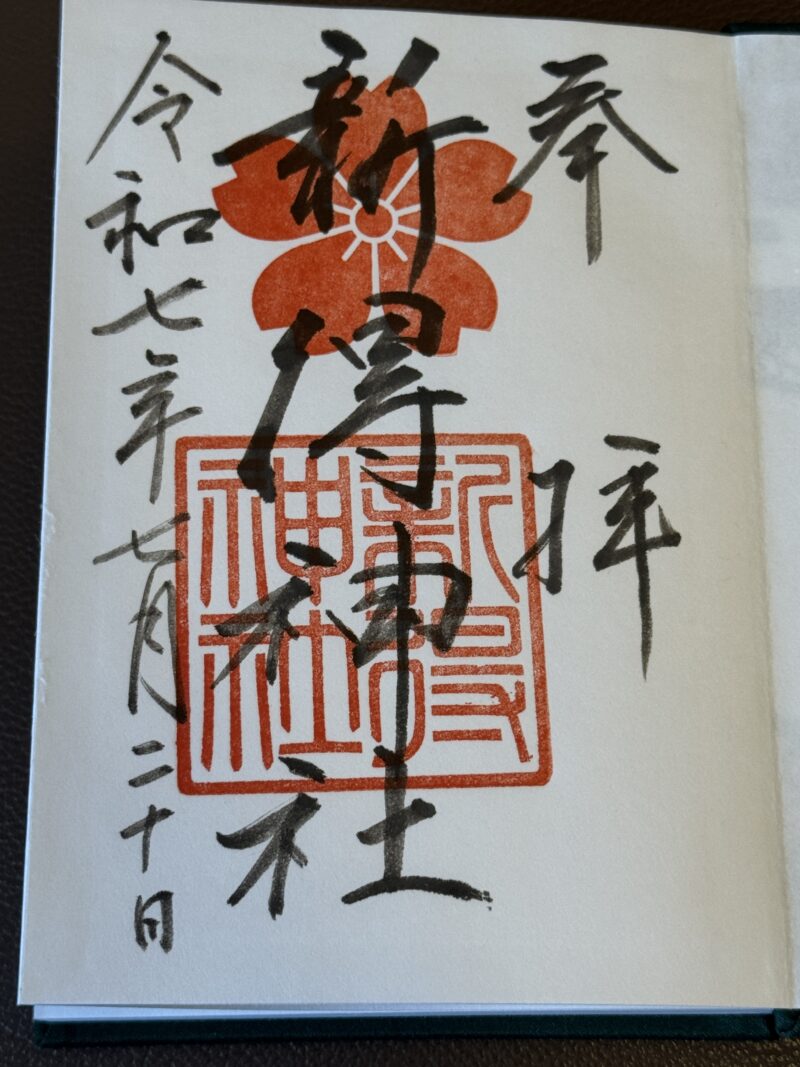 奉拝
新得神社
新得神社
令和七年七月二十日